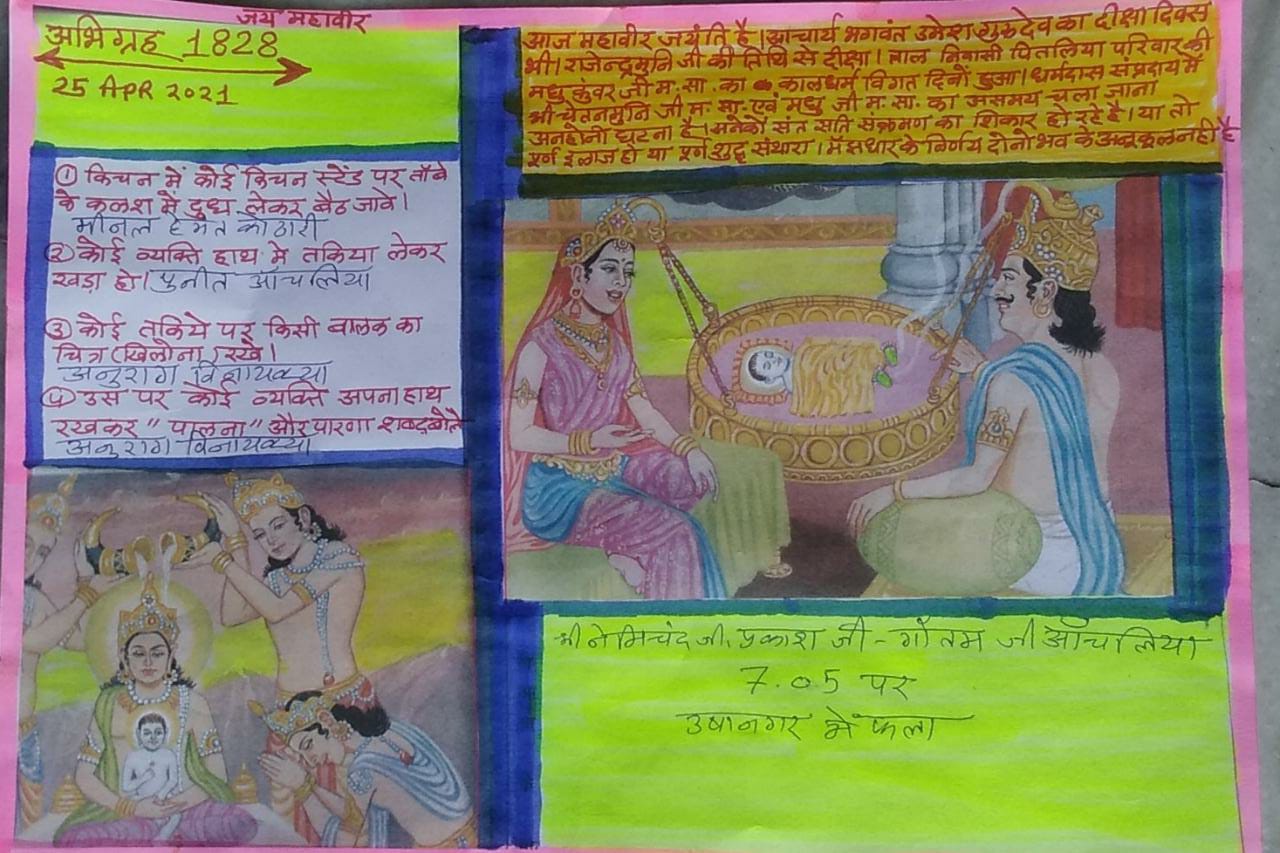 जय महावीर
अभिग्रह 1828
25 APR 2021
आज महावीर जयंति है। आचार्य भगवंत उमेश गुरुदेव का दीक्षा दिवस
भी। राजेन्द्रमुनि जी की तिथि से दीक्षा। लाल निवासी पितलिया परिवार की
मधु कुंवर जी म. सा. का कालधर्म विगत दिनों हुआ। धर्मदास संप्रदाय में
श्री चेतनमुनि जी म. सा. एवं मधु जी म. सा. का असमय चला जाना
अनहोनी घटना है। अनेकों संत सति संक्रमण का शिकार हो रहे है। या तो
पूर्ण ईलाज हो या पूर्ण शुद्ध संथारा। मंझधार के निर्णय दोनो भव के अनूकूल नहीं है
① किचन में कोई किचन स्टेंड पर ताँबे
के कलश में दुध लेकर बैठ जावे।
मीनल हेमंत कोठारी
② कोई व्यक्ति हाथ मे तकिया लेकर
खड़ा हो। पुनीत आँचलिया
③ कोई तकिये पर किसी बालक का
चित्र (खिलोना) रखे।
अनुराग विनायक्या
④ उस पर कोई व्यक्ति अपना हाथ
रखकर "पालना" और पारणा शब्द बोले
अनुराग विनायक्या
श्री नेमिचंद जी, प्रकाश जी - गौतम जी आँचलिया
7.05 पर
उषानगर में फला